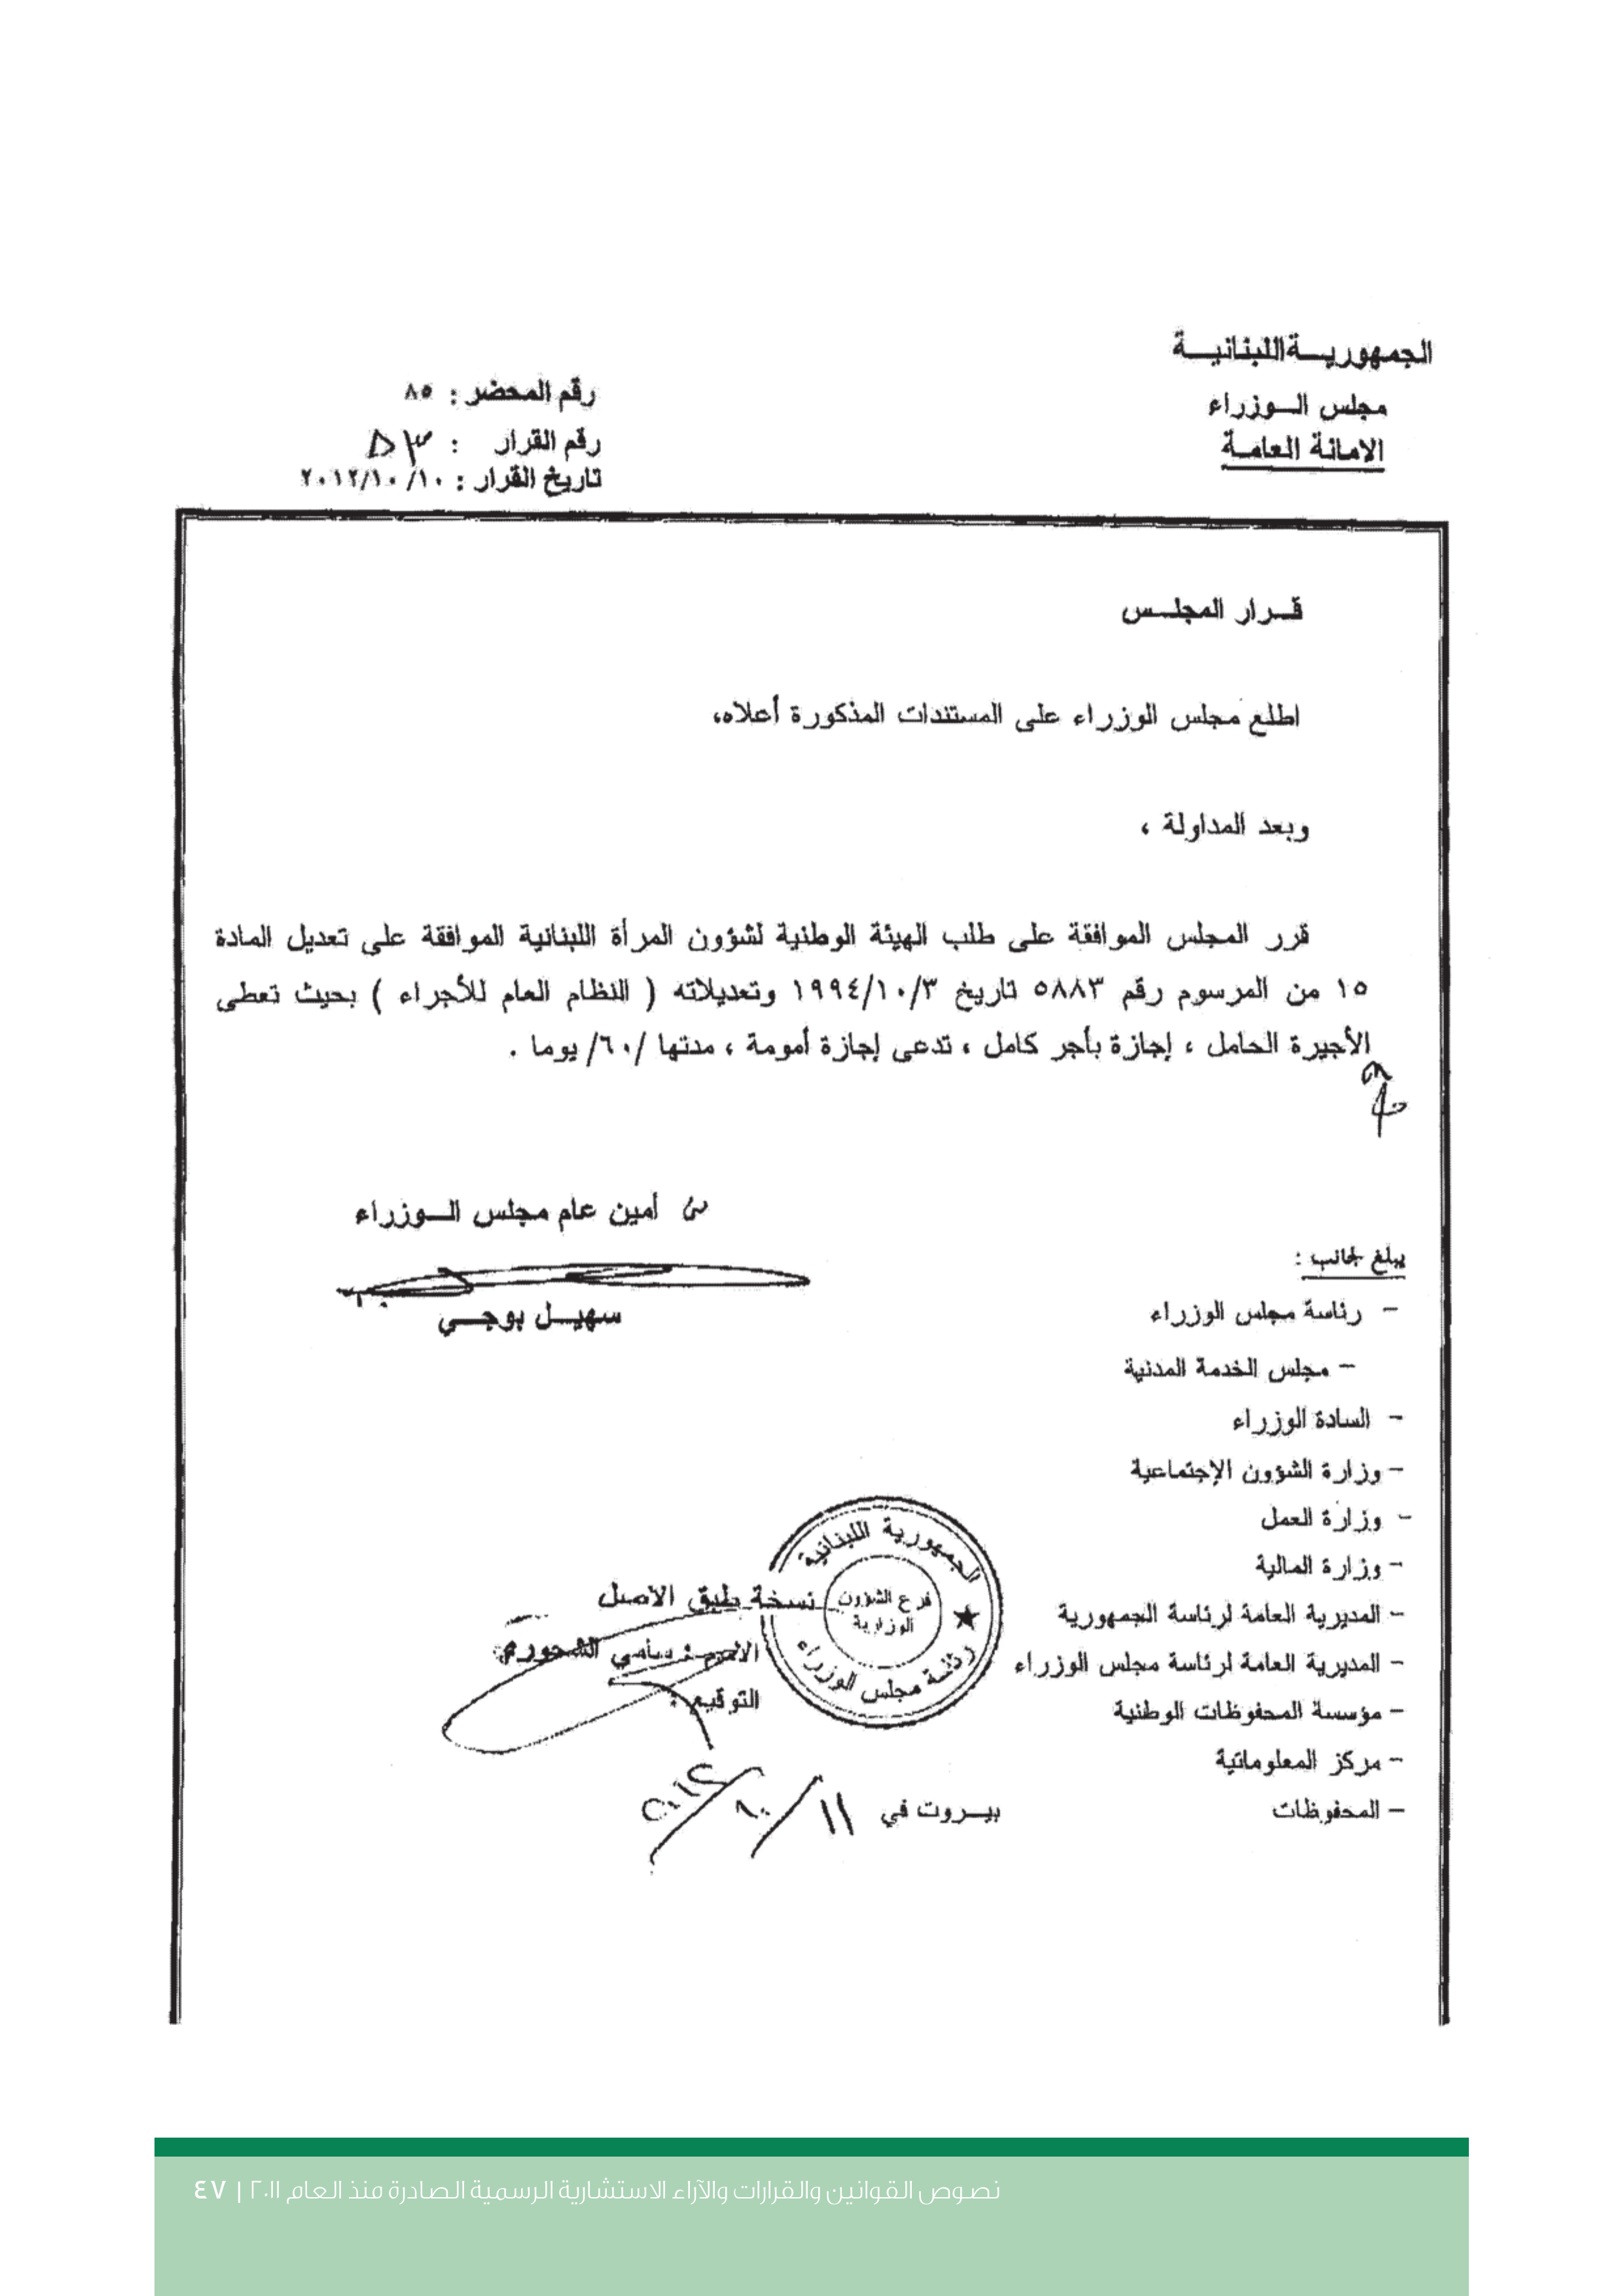 الجمهورية اللبنانية
مجلس الوزراء
الامانة العامة
رقم المحضر : ٨٥
رقم القرار : ٥٣
تاريخ القرار : ٢٠١٢/١٠/١٠
قرار المجلس
اطلع مجلس الوزراء على المستندات المذكورة أعلاه،
وبعد المداولة ،
قرر المجلس الموافقة على طلب الهيئة الوطنية لشؤون المرأة اللبنانية الموافقة على تعديل المادة
١٥ من المرسوم رقم ٥٨٨٣ تاريخ ١٩٩٤/١٠/٣ وتعديلاته ( النظام العام للأجراء ) بحيث تعطى
الأجيرة الحامل ، إجازة بأجر كامل ، تدعى إجازة أمومة ، مدتها /٦٠/ يوما .
أمين عام مجلس الوزراء
سهيل بوجي
يبلغ لجانب :
- رئاسة مجلس الوزراء
- مجلس الخدمة المدنية
- السادة الوزراء
- وزارة الشؤون الإجتماعية
- وزارة العمل
- وزارة المالية
- المديرية العامة لرئاسة الجمهورية
- المديرية العامة لرئاسة مجلس الوزراء
- مؤسسة المحفوظات الوطنية
- مركز المعلوماتية
- المحفوظات
الجمهورية اللبنانية
فرع الشؤون
الوزارية
رئاسة مجلس الوزراء
نسخة طبق الاصل
الاسم : سامي الشحوري
التوقيع :
بيروت في ١١/١٠/٢٠١٢
نصوص القوانين والقرارات والآراء الاستشارية الرسمية الصادرة منذ العام ٢٠١١ | ٤٧